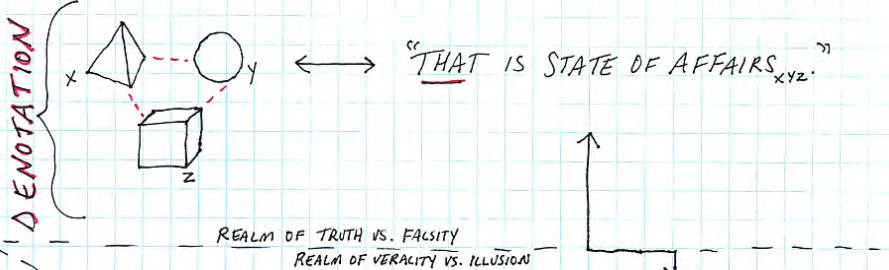 DENOTATION
X
Y
Z
"THAT IS STATE OF AFFAIRS XYZ."
REALM OF TRUTH VS. FALSITY
REALM OF VERACITY VS. ILLUSION